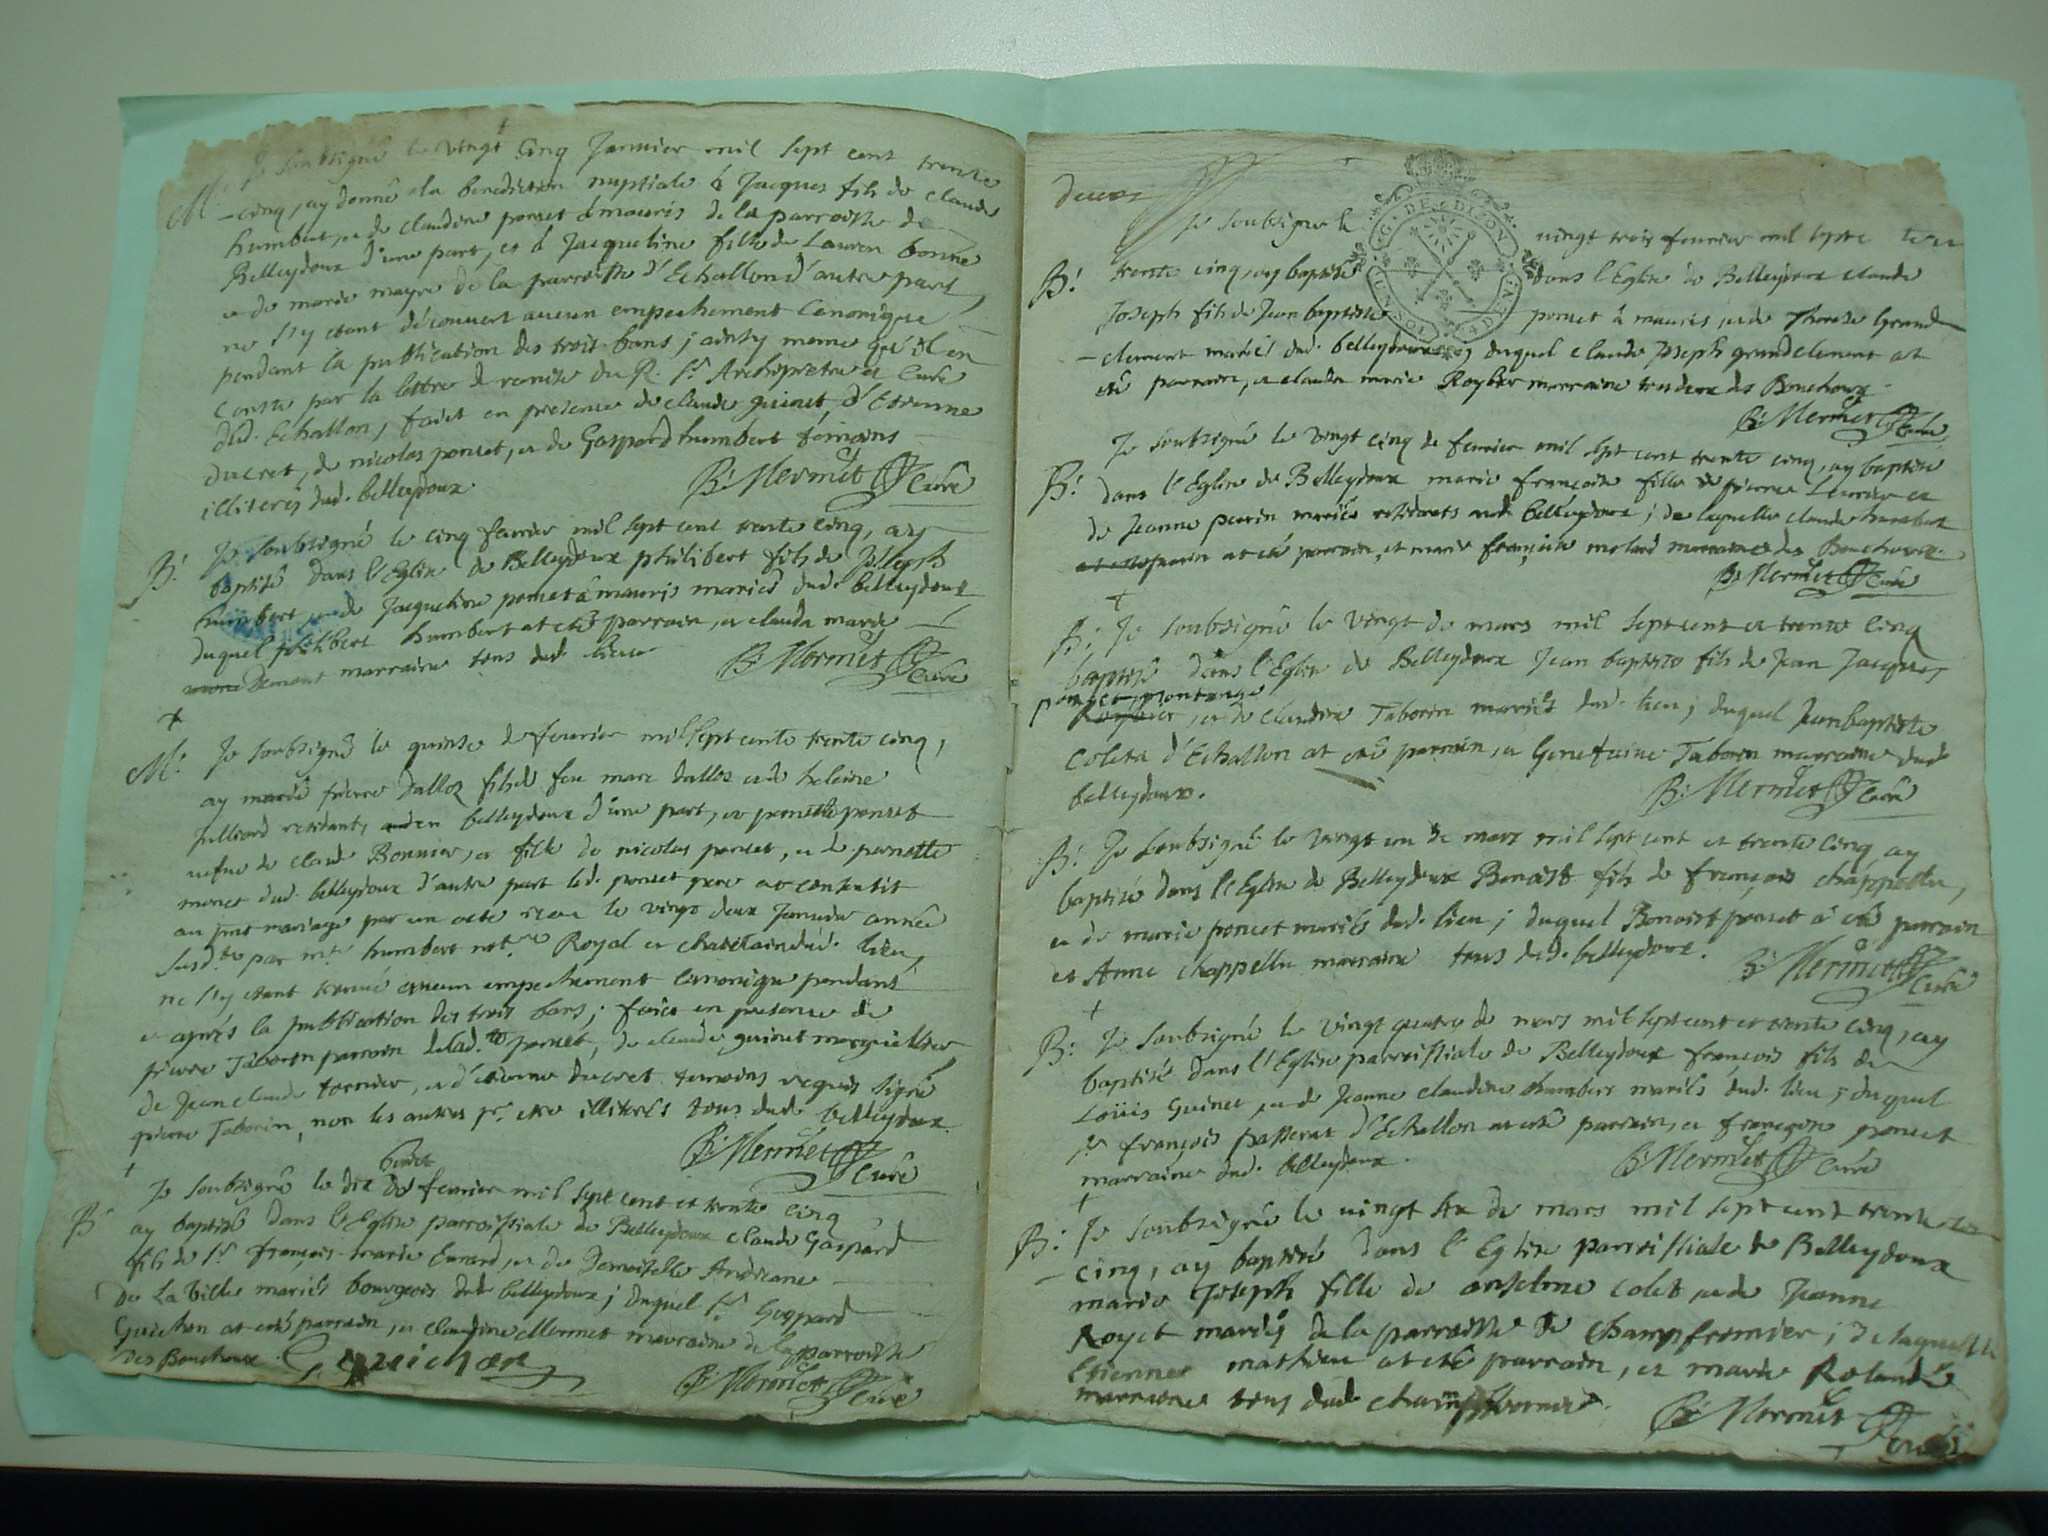 M. Je soubsigné le vingt cinq Janvier mil sept cent trente
-cinq, ay donné la benediction nuptiale à Jacques fils de claude
humbert, et de claudine poncet à mauris de la parroisse de
Belleydoux d'une part, et à Jacqueline fille de Lauren bonne
et de marie mayre de la parroisse d'Echallon d'autre part,
ne s'y etant découvert aucun empechement Canonique
pendant la publication des trois bans, ainsy meme qu'il en
Conste par la lettre de remise du R. Sr. Archipretre et Curé
dud. Echallon, faict en presence de claude guinet, d'Etienne
Ducret, de nicolas poncet, et de Gaspard humbert témoins
illiterés dud. belleydoux.
B. Mermet Curé
B. Je soubsigné le cinq fevrier mil sept cent trente cinq, ay
baptisé dans l'Eglise de Belleydoux philibert fils de Joseph
humbert, et de Jacqueline poncet à mauris mariés dud. belleydoux
duquel philibert humbert at eté parrain, et clauda marie
Demont marraine tous dud. lieu
B. Mermet Curé
M. Je soubsigné le quinse de fevrier mil sept cent trente cinq,
ay marié pierre Dalloz fils de feu marc dalloz et de heleine
Julliard residant, en belleydoux d'une part, et pernette poncet
vefve de claude Bonnier, et fille de nicolas poncet, et de pernette
monet dud. belleydoux d'autre part led. poncet pere at consentit
au pnt mariage par un acte receu le vingt deux Janvier année
susd.te par mr. humbert not.re Royal et chatelain dud. lieu,
ne s'y etant trouvé aucun empechement canonique pendant
et après la publication des trois bans; faict en presence de
pierre Taborin parrain de lad.te poncet, de claude guinet marguillier
de Jean claude tornier, et d'etienne Ducret temoins requis signé
pierre Taborin, non les autres pr. etre illiterés tous dud. belleydoux.
B. Mermet Curé
huict
B. Je soubsigné le dix de fevrier mil sept cent et trente cinq
ay baptisé dans l'Eglise parroissiale de Belleydoux claude Gaspard
fils de Sr. françois-marie Evrard, et de Demoiselle Andreane
De La Ville mariés bourgeois dud. belleydoux; duquel Sr. Gaspard
Guichon at eté parrain, et claudine Mermet marraine de la parroisse
des Bouchoux. G. guichon
B. Mermet Curé
deux
G. DE DIJON
UN SOL 4 DEN.
Je soubsigné le vingt trois fevrier mil sept cent
B. trente cinq, ay baptisé dans l'Eglise de Belleydoux claude
Joseph fils de Jean baptiste poncet à mauris, et de Therese Grand
-clement mariés dud. belleydoux, duquel claude Joseph grandclement at
eté parrain, et claudia marie Roybier marraine tous deux des Bouchoux.
B. Mermet Curé
B. Je soubsigné le vingt cinq de fevrier mil sept cent trente cinq, ay baptisé
dans l'Eglise de Belleydoux marie françoise fille de pierre Levrier et
de Jeanne perrin mariés residents aud. belleydoux; de laquelle claude humbert
at eté parrain, et marie françoise molard marraine des Bouchoux.
B. Mermet Curé
B. Je soubsigné le vingt de mars mil sept cent et trente cinq
baptisé dans l'Eglise de Belleydoux Jean baptiste fils de Jean Jacques
poncet montange
et de claudine Taborin mariés dud. lieu; duquel Jean baptiste
Coleta d'Echallon at eté parrain, et Genefueine Taborin marraine dud
belleydoux.
B. Mermet Curé
B. Je soubsigné le vingt un de mars mil sept cent et trente cinq ay
baptisé dans l'Eglise de Belleydoux Benoist fils de françois chappellu,
et de marie poncet mariés dud. lieu; duquel Benoist poncet a eté parrain
et Anne chappellu marraine tous dud. belleydoux.
B. Mermet Curé
B. Je soubsigné le vingt quatre de mars mil sept cent et trente cinq, ay
baptisé dans l'Eglise parroissiale de Belleydoux françois fils de
Loüis Guinet, et de Jeanne claudine humbert mariés dud. lieu; duquel
sr. françois passerat d'Echallon at eté parrain, et françoise poncet
marraine dud. belleydoux.
B. Mermet Curé
B. Je soubsigné le vingt six de mars mil sept cent trente
-cinq, ay baptisé dans l'Eglise parroissiale de Belleydoux
marie Joseph fille de anselme colet, et de Jeanne
Royet mariés de la parroisse de champfromier; de laquelle
Etienne mathieu at eté parrain, et marie Rolande
marraine tous dud. champfromier.
B. Mermet Curé